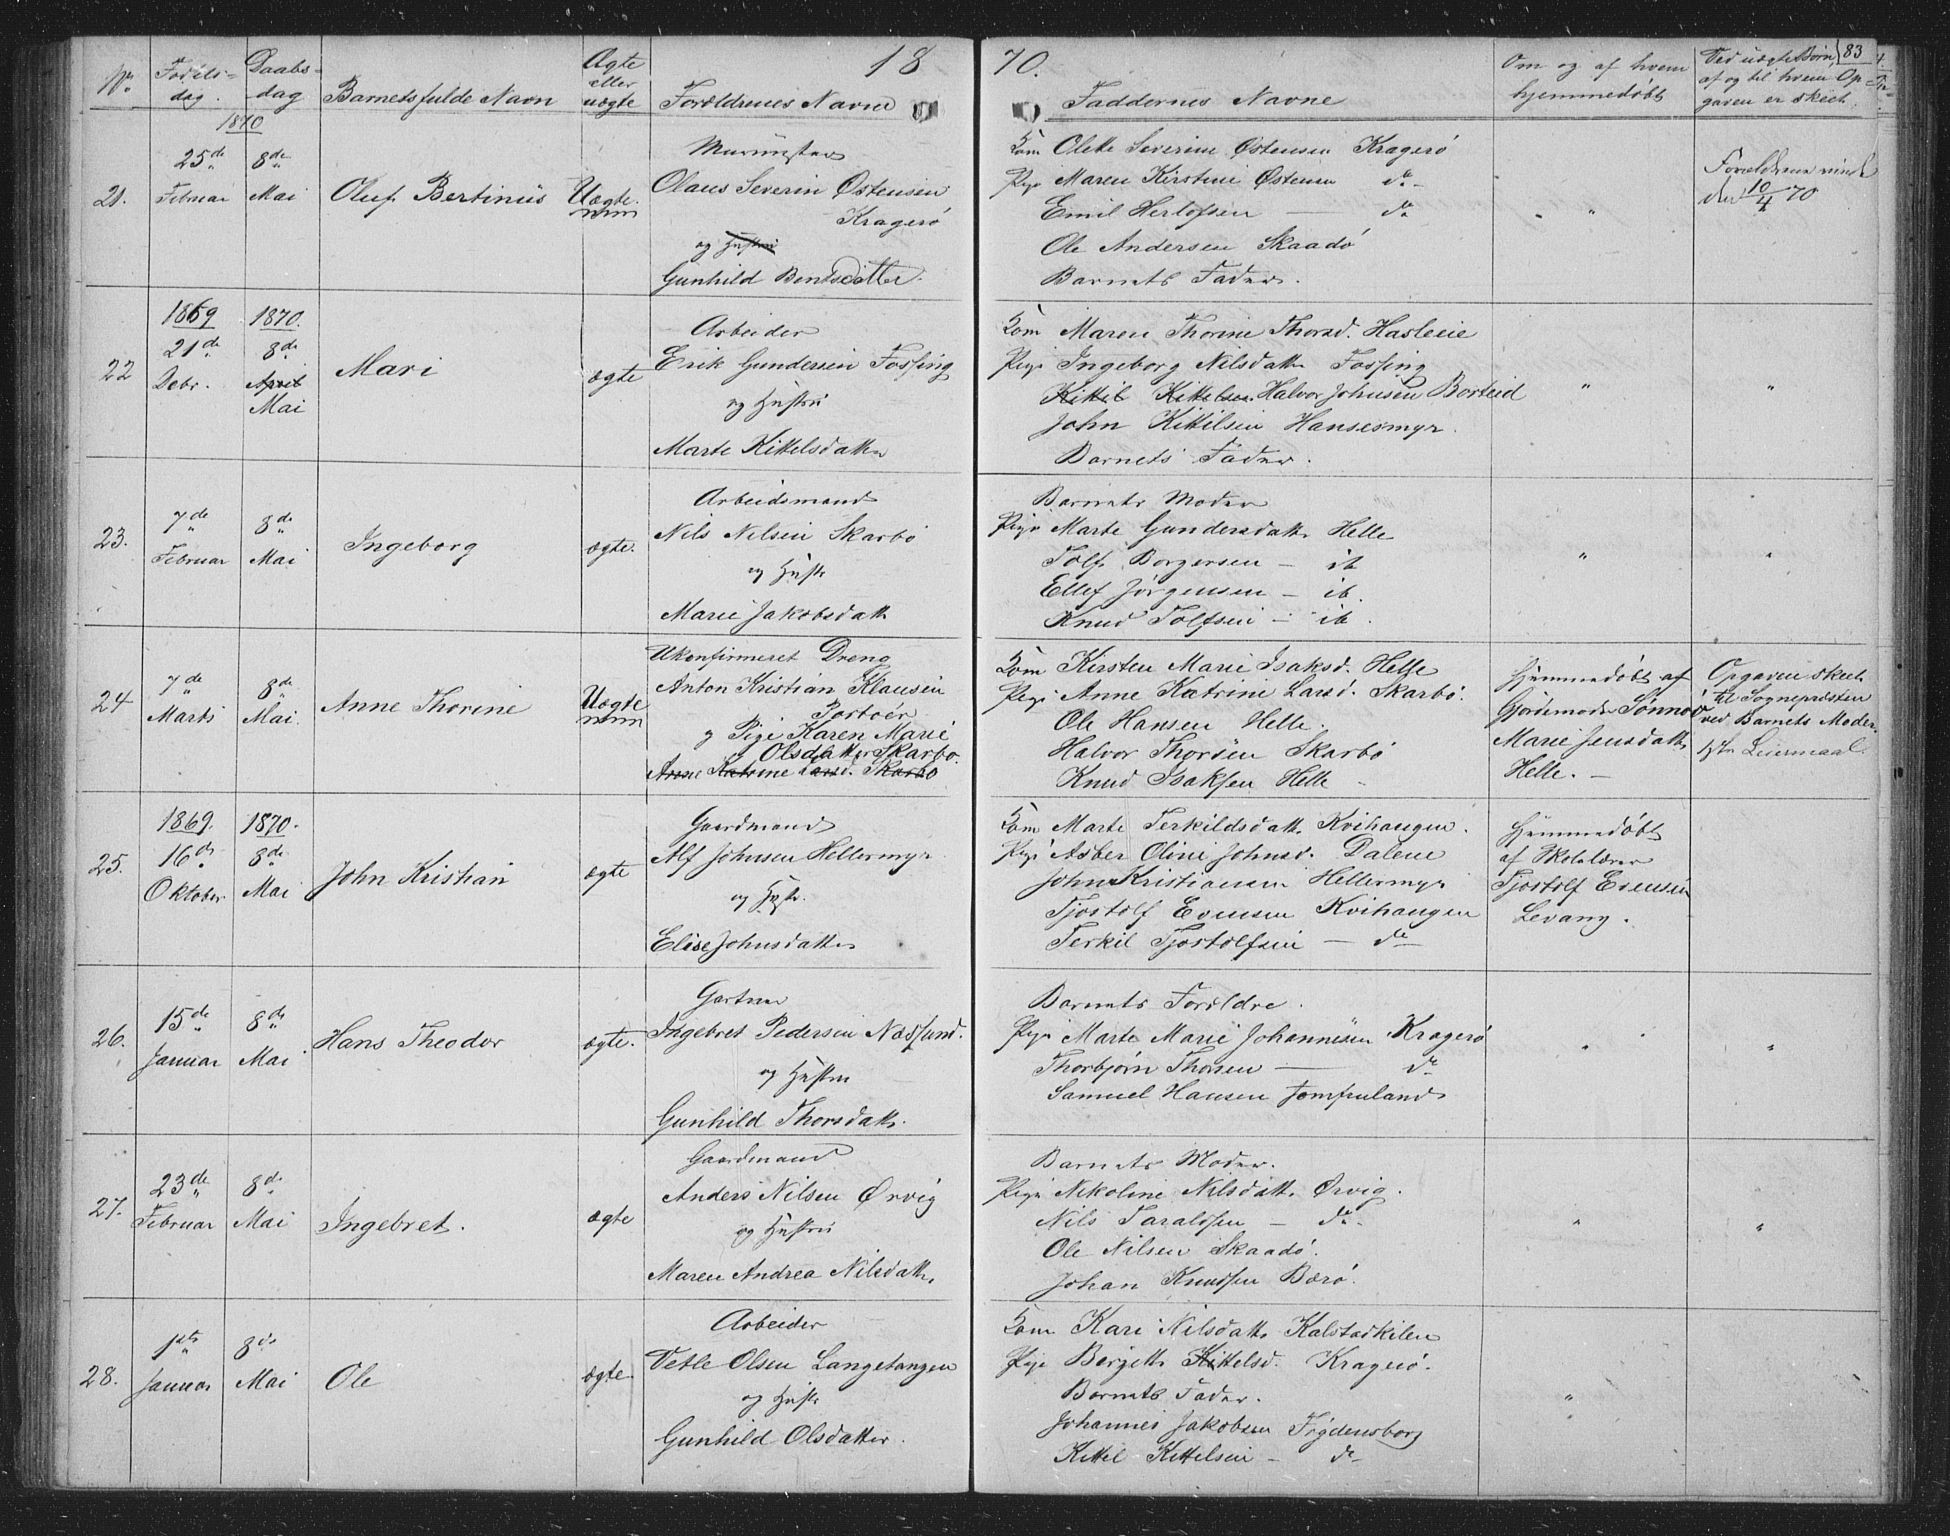 18 70. 83
No. Fødels-dag. Daabs-dag Barnets fulde Navn Ægte eller uægte Forældrenes Navne
Faddernes Navne Om og af hvem hjemmedøbt Ved uægte Børn, af og til hvem Opgaven er skeet.
1870
21. 25de Februar 8de Mai Oluf Bertinius Uægte
Olaus Severin Østensen
Kragerø
og Hustru
Gunhild Bentsdatter.
Kone Olette Severine Østensen Kragerø
Pige Maren Kirstine Østensen do
Emil Herlofsen — do
Ole Andersen Skaadø
Barnets Fader.
"
den 10/4 70
1869 1870.
22 21de Debr. 8de April Mai Mari ægte
Arbeider
Erik Gundersen Fossing
og Hustru
Marte Kittelsdatter
Kone Maren Thorine Thorsd. Hasleeie
Pige Ingeborg Nilsdatt. Fossing
Kittil Kittelsen Halvor Johnsen Borteid
John Kittilsen Hansesmyr.
Barnets Fader.
" "
23. 7de Februar 8de Mai Ingeborg ægte.
Arbeidsmand
Nils Nilsen Skarbø
og Hustr
Marie Jakobsdatt
Barnets Moder
Pige Marte Gundersdatt. Helle
Tolf Borgersen — ib
Ellef Jørgensen — ib.
Knud Tolfsen — ib.
" "
24 7de Marts 8de Mai. Anne Thorine Uægte
Ukonfirmeret Dreng
Anton Kristian Klausen
Portør
og Pige Karen Marie
Olsdatter Skarbo.
Anne Katrine Larsd. Skarbø
Kone Kirsten Marie Isaksd. Helle
Pige Anne Katrine Larsd. Skarbø.
Ole Hansen Helle.
Halvor Thorsen Skarbø
Knud Isaksen Helle —
Hjemmedøbt af
Gjordemoder Sønnøv
Marie Jensdatt.
Helle. —
Opgaven skeet
til Sognepræsten
ved Barnets Moder.
1ste Leiermaal.
1869. 1870.
25. 16de Oktober 8de Mai John Kristian ægte
Gaardmand
Alf Johnsen Hellermyr
og Hustr.
Elise Johnsdatter
Kone Marte Terkildsdatt. Kvihaugen.
Pige Asber Oline Johnsd. Dalene
John Kristiansen Hellermyr
Tjostolf Evensen Kvihaugen
Terkil Tjostolfsen — do
Hjemmedøbt
af Skolelærer
Tjostolf Evensen
Levang.
26. 15de Januar 8de Mai Hans Theodor ægte.
Gartner
Ingebret Pedersen Næssund.
og Hustru
Gunhild Thorsdatt.
Barnets Forældre.
Pige Marte Marie Johannesen Kragerø
Thorbjørn Thorsen — do
Samuel Hansen Jomfruland
" "
27. 23de Februar 8de Mai Ingebret. ægte
Gaardmand
Anders Nilsen Ørvig
og Hustru
Maren Andrea Nilsdatt.
Barnets Moder.
Pige Nikoline Nilsdatt. Ørvig.
Nils Taraldsen — do.
Ole Nilsen Skaadø.
Johan Knudsen Bærø.
" "
28. 1ste Januar 8de Mai Ole ægte
Arbeider
Vetle Olsen Langetangen
og Hustr
Gunhild Olsdatter.
Kone Kari Nilsdatt. Kalstadkilen
Pige Bergette Kittelsd. Kragerø.
Barnets Fader.
Johannes Jakobsen Frydensborg
Kittil Kittelsen — do
"